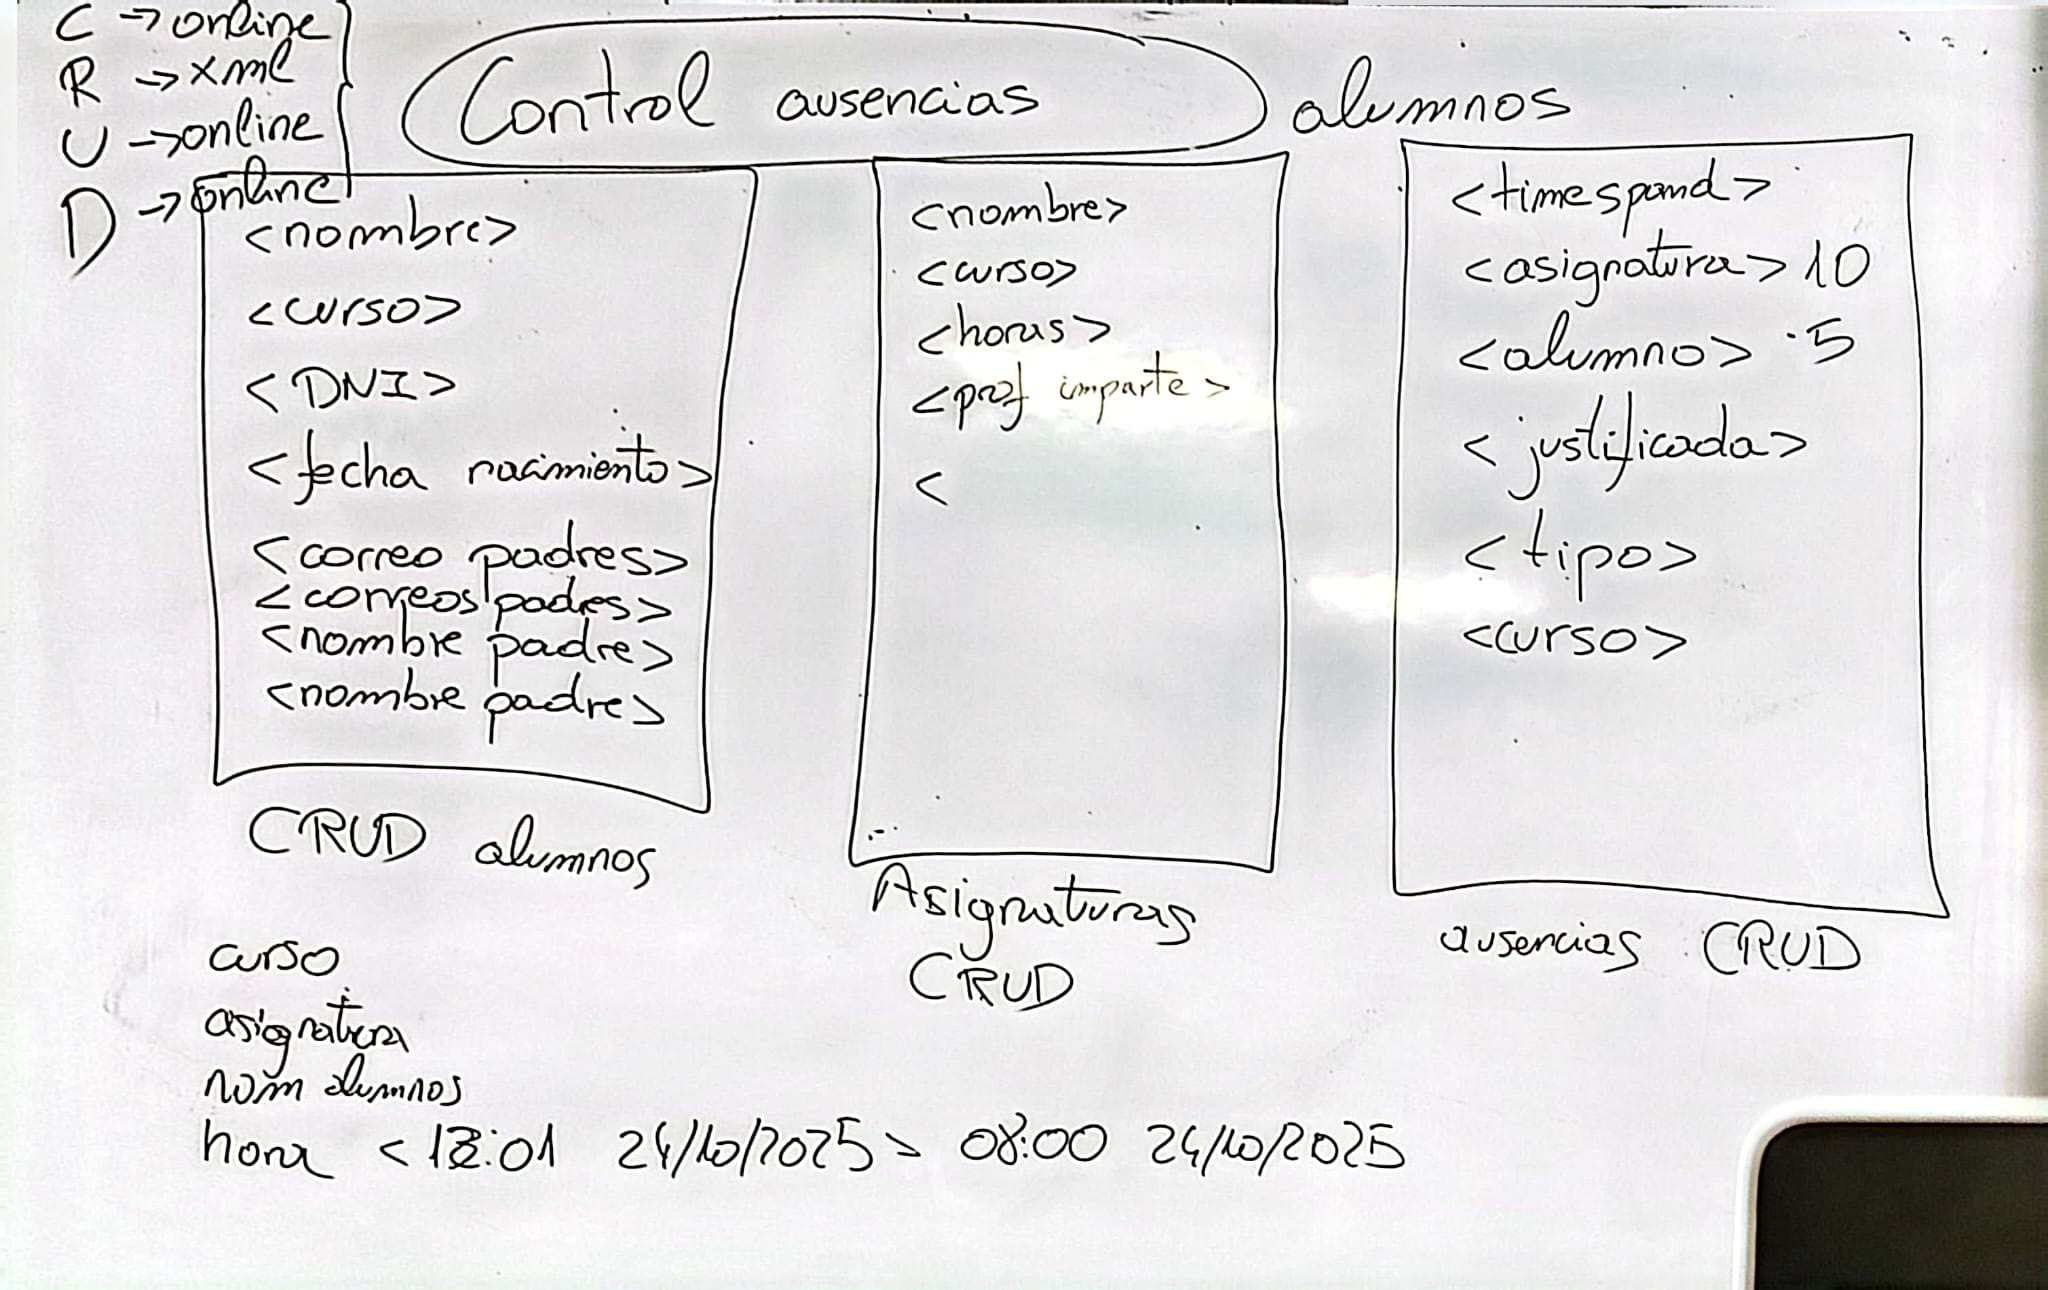 C → online
R → xml
U → online
D → online
Control ausencias alumnos
<nombre>
<curso>
<DNI>
<fecha nacimiento>
<correo padres>
<correos padres>
<nombre padre>
<nombre padre>
CRUD alumnos
<nombre>
<curso>
<horas>
<prof imparte>
<
Asignaturas
CRUD
<timespamd>
<asignatura> 10
<alumno> 5
<justificada>
<tipo>
<curso>
ausencias CRUD
curso
asignatura
nom alumnos
hora < 12:01 24/10/2025 > 08:00 24/10/2025